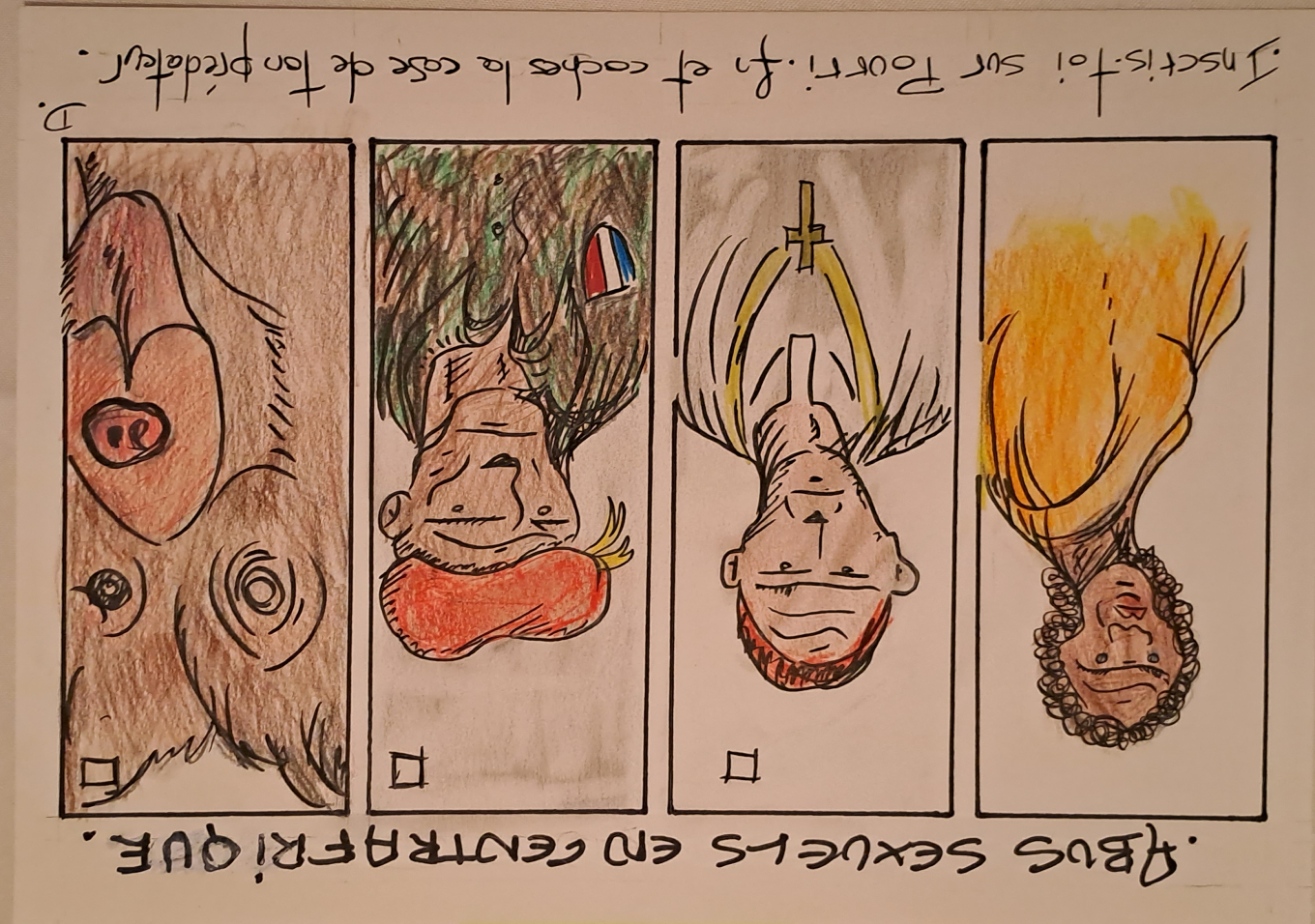 .ABUS SEXUELS EN CENTRAFRIQUE.
.Inscris-toi sur Pourri.fr et coches la case de ton prédateur.
D.